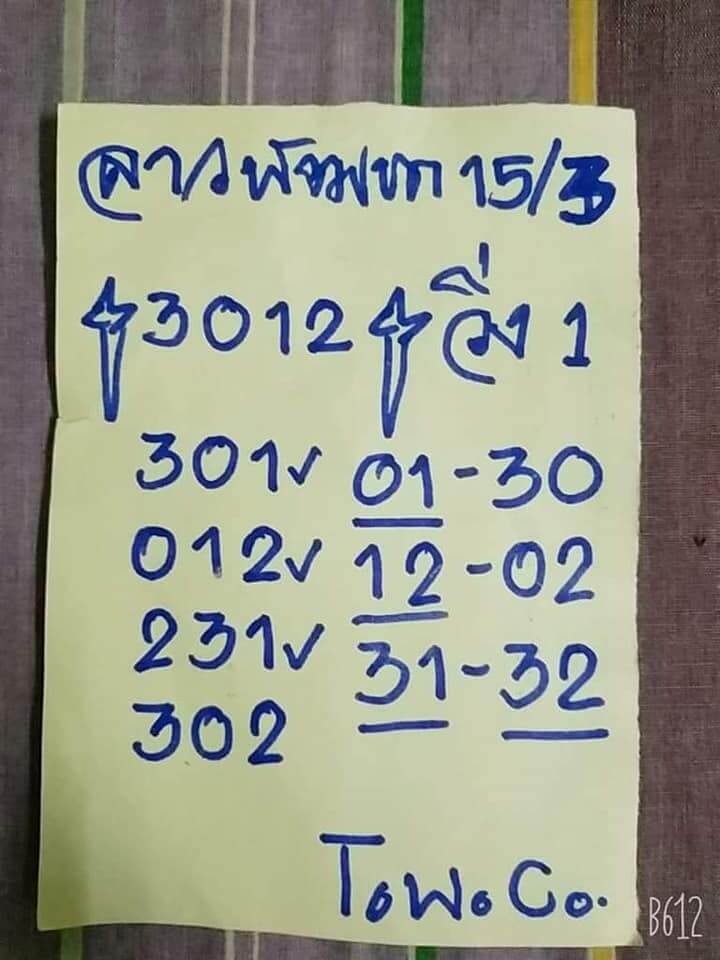 ลาวพัฒนา 15/3
3012 วิ่ง 1
301✓ 01-30
012✓ 12-02
231✓ 31-32
302
ToWoCo.
B612